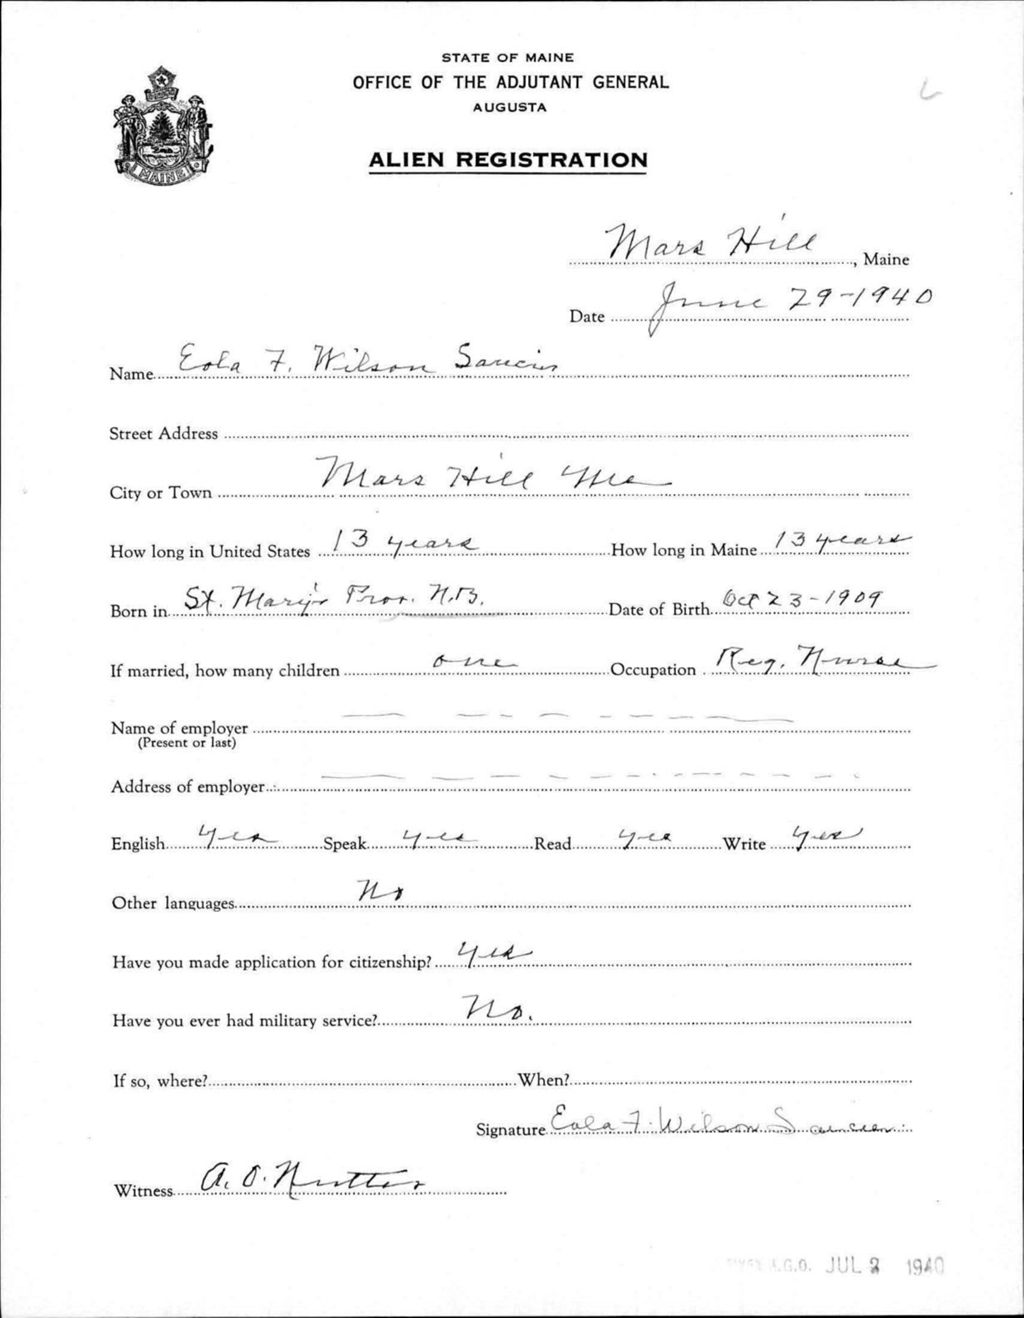 STATE OF MAINE
OFFICE OF THE ADJUTANT GENERAL
AUGUSTA
MAINE
ALIEN REGISTRATION
Mars Hill, Maine
Date June 29-1940
Name Eola F. Wilson Saucier
Street Address
City or Town Mars Hill Me
How long in United States 13 years How long in Maine 13 years
Born in St. Mary's Prov. N.B. Date of Birth Oct 23-1909
If married, how many children one Occupation Reg. Nurse
Name of employer
(Present or last)
Address of employer
English yes Speak yes Read yes Write yes
Other languages No
Have you made application for citizenship? yes
Have you ever had military service? No.
If so, where? When?
Signature Eola F. Wilson Saucier
Witness A. O. Nutter
A.G.O. JUL 2 1940